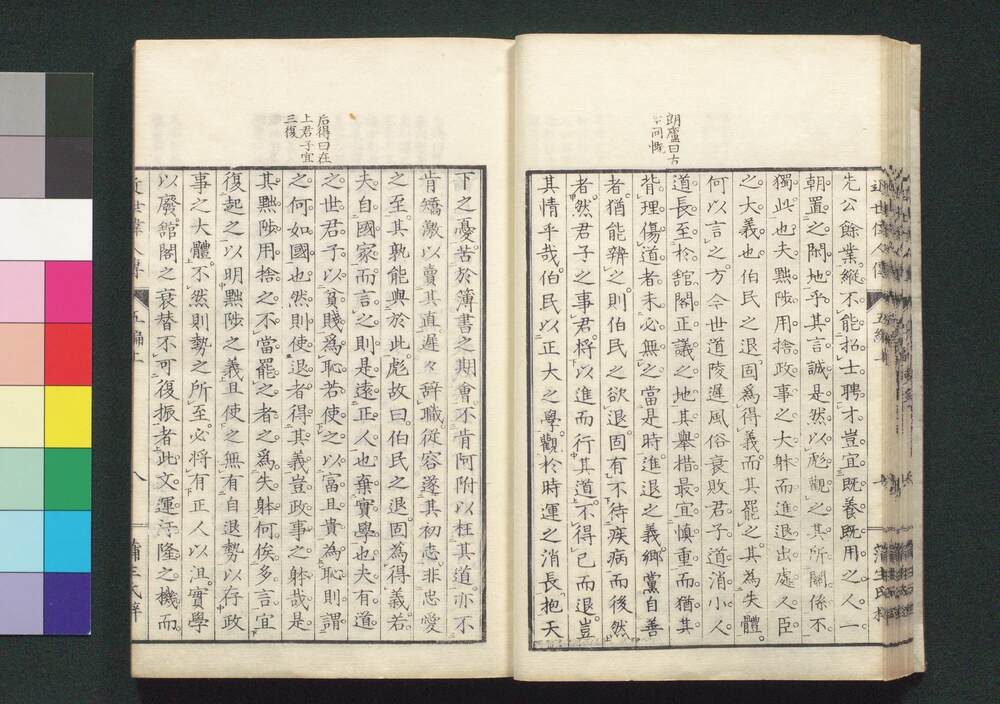 朗廬曰古
今同慨
先公餘業縱不能招士聘才豈宜既養既用之人一
朝置之閑地乎其言誠是然以彪觀之其所關係不
獨此也夫黜陟用捨政事之大躰而進退出處人臣
之大義也伯民之退固爲得義而其罷之其為失體
何以言之方今世道陵遲風俗衰敗君子道消小人
道長至於舘閣正議之地其舉措最宜慎重而猶其
背理傷道者未必無之當是時進退之義鄉黨自善
者猶能辨之則伯民之欲退固有不待疾病而後然
者然君子之事君將以進而行其道不得已而退豈
其情乎哉伯民以正大之學觀於時運之消長抱天
后得曰在
上君子宜
三復
下之憂苦於簿書之期會不肯阿附以枉其道亦不
肯矯激以賣其直遲々辞職從容遂其初志非忠愛
之至其孰能與於此彪故曰伯民之退固為得義若
夫自國家而言之則是遠正人也棄實學也夫有道
之世君子以貧賤爲恥若使之以富且貴為恥則謂
之何如國也然則使退者得其義豈政事之躰哉是
其黜陟用捨之不當罷之者之爲失躰何俟多言宜
復起之以明黜陟之義且使之無有自退勢以存政
事之大體不然則勢之所至必將有正人以沮實學
以廢舘閣之衰替不可復振者此文運汙隆之機而
近世偉人傳
五編上
八
蒲生氏梓